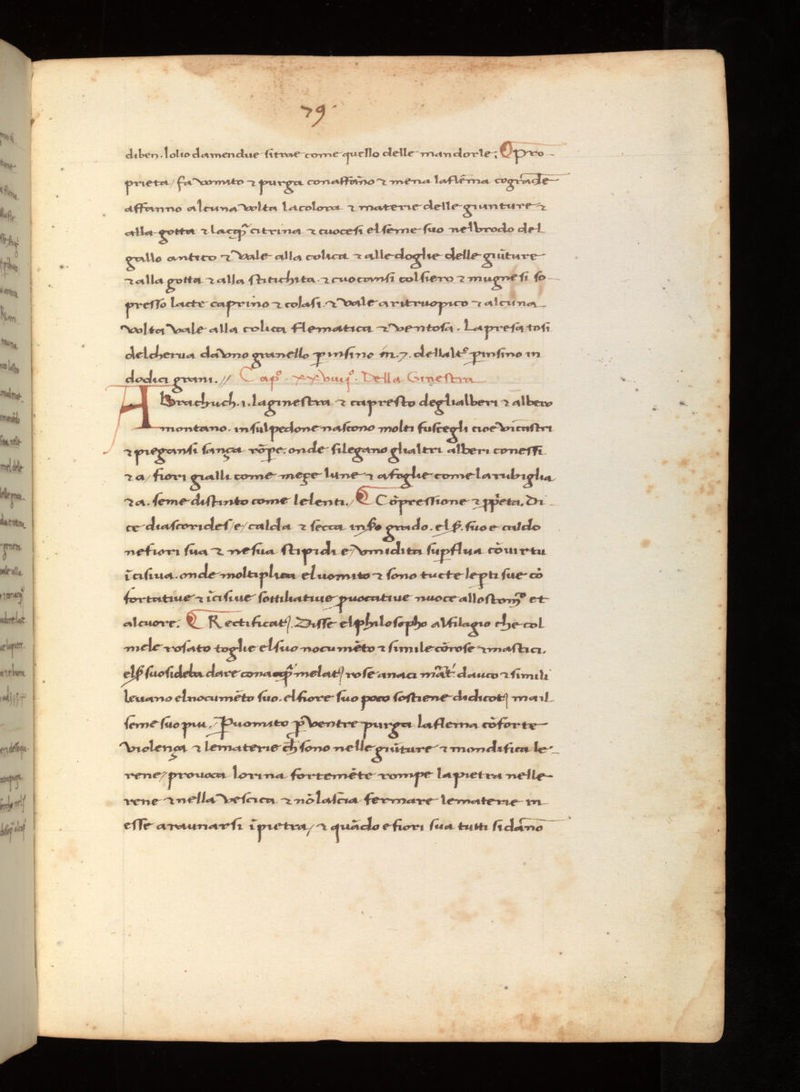 79
diben. lolio damendue sitrae come quello delle mandorle; Opro
prieta / fa vomito ⁊ purga conaffāno ⁊ mena laflēma cōgrande
affanno alcuna volta lacolora ⁊ materie delle giunture ⁊
alla gotta ⁊ citrina ⁊ cuocesi elseme suo nelbrodo del
gallo antico ⁊ vale alla colica ⁊ alle doglie delle giūture
⁊ alla gotta ⁊ alla stitichita. ⁊ cuoconsi colsiero ⁊ mugnesi so
presso lacte caprino ⁊ colasi. ⁊ vale aritruopico ⁊ alcuna
volta vale alla colica flematica ⁊ ventosa. Lapresa
delcherua da uno granello ꝑ insino in
dodici grani. // Capº. xxviiijº. Della Ginestra
Abrachuch. i. laginestra ⁊ capresto deglialberi ⁊ albero
montano. insulpedone nascono molti fuscegli cioe vicastri
⁊ pieganti sança rōpe. onde silegano glialtri alberi conessi
⁊ a / fiori gialli come meçe lune ⁊ afoglie come larubiglia
⁊ a. seme distinto come lelenti. / Cōpressione ⁊ ꝓpeta. Di
ce diascorides / e / calda ⁊ secca grado. suo e caldo
nefiori sua ⁊ nesua stipidi e vmidita supflua cōuirtu
īcisiua. onde moltiplica eluomito ⁊ sono tucte lepti sue cō
fortatiue ⁊ īcisiue sottiliatiue ꝓuocatiue nuoce allostomº et
alcuore. Rectificatꝭ. Disse elphilosopho alfilagio che col
mele rosato toglie elsuo nocumēto ⁊ simile cōrose ⁊ mastici.
suosideba dare melatꝭ rose anaci dauco ⁊ simili
leuano elnocumēto suo. elfiore suo poco sostiene didicotꝭ mail
seme suo piu. ꝑuomito ꝑventre purga laflema cōforte
violença ⁊ lematerie ch̄ sono nelle giūture ⁊ mondifica le
rene / prouoca lorina fortemēte rompe lapietra nelle
rene ⁊ nella vescica ⁊ nōlascia fermare lematerie in
esse araunarsi īpietra / ⁊ quādo efiori sua tutti sidāno